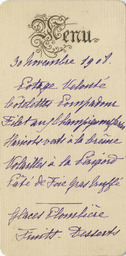 Menu
30 novembre 1908.
Potage Velouté
Côtelettes Pompadour
Filet aux Champignons
Haricots verts à la Crème
Volailles à la
Pâté de Foie Gras truffé
Glaces Plombière
Fruits Desserts